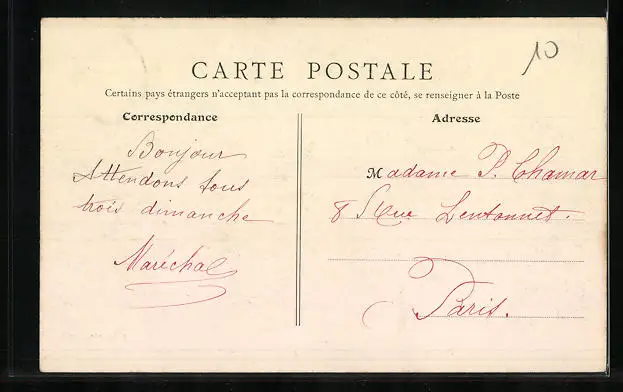 10
CARTE POSTALE
Certains pays étrangers n'acceptant pas la correspondance de ce côté, se renseigner à la Poste
Correspondance
Bonjour
Attendons tous
trois dimanche
Maréchal
Adresse
Madame P. Chamar
8 Rue Lentonnet.
Paris.